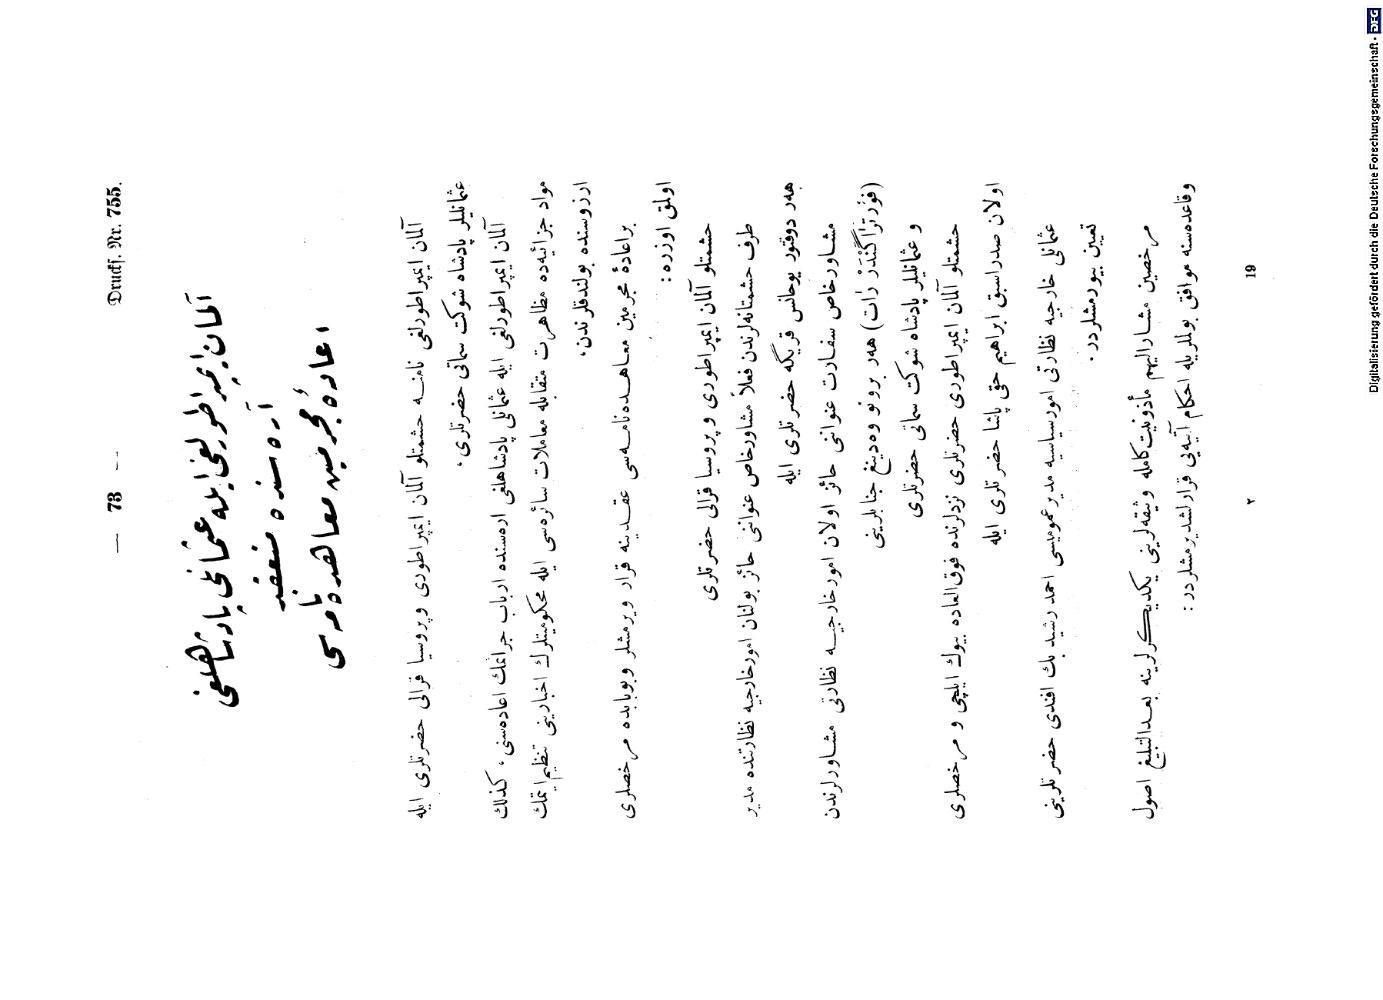 — 73 —
Drucks. Nr. 755.
آلمان ایمپراطورلغی ایله عثمانلی پادشاهلغی
آره سنده منعقد
اعادهٔ مجرمین معاهده نامه سی
آلمان ایمپراطورلغی نامنه حشمتلو آلمان ایمپراطوری وپروسیا قرالی حضرتلری ایله
عثمانلیلر پادشاه شوکت سماتی حضرتلری،
آلمان ایمپراطورلغی ایله عثمانلی پادشاهلغی اره‌سنده ارباب جرائمك اعاده‌سنی، كذلك
مواد جزائیه‌ده مظاهرت متقابله معاملات سائره‌سی ایله محکومیتلرك اخبارینی تنظیم ایتمك
ارزوسنده بولندقلرندن،
براعادهٔ مجرمین معاهده‌نامه‌سی عقدینه قرار ویرمشلر وبوبابده مرخصلری
اولمق اوزره :
حشمتلو آلمان ایمپراطوری وپروسیا قرالی حضرتلری
طرف حشمتانه‌لرندن فعلاً مشاورخاص عنوانی حائز بولنان امورخارجیه نظارتنده مدیر
هەر دوقتور یوحانس قریگه حضرتلری ایله
مشاورخاص سفارت عنوانی حائز اولان امورخارجیه نظارتی مشاورلرندن
هەر برونو وه‌دینغ جنابلرینی
و عثمانلیلر پادشاه شوکت سماتی حضرتلری
حشمتلو آلمان ایمپراطوری حضرتلری نزدلرنده فوق‌العاده بیوك ایلچی و مرخصلری
اولان صدراسبق ابراهیم حقی پاشا حضرتلری ایله
عثمانلی خارجیه نظارتی امورسیاسیه مدیرعمومیسی احمد رشید بك افندی حضرتلرینی
تعیین بیورمشلردر .
مرخصین مشارالیهم مأذونیت‌کامله وثیقه‌لرینی یکدیگرلرینه بعدالتبلیغ اصول
وقاعده‌سنه موافق بوللریله احکام آتیه‌یی قرارلشدیرمشلردر :
٢
19
Digitalisierung gefördert durch die Deutsche Forschungsgemeinschaft - DFG